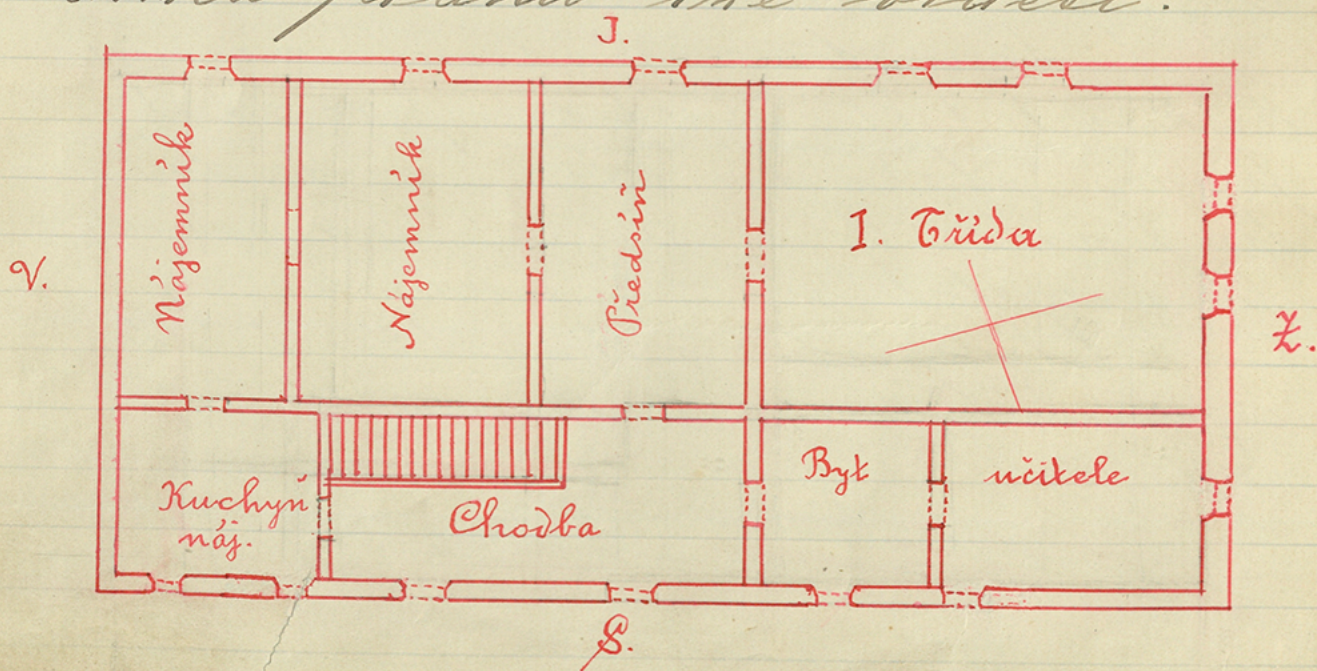 J.
V.
Nájemník
Nájemník
Předsíň
I. Třída
Z.
Kuchyň
náj.
Chodba
Byt
učitele
S.